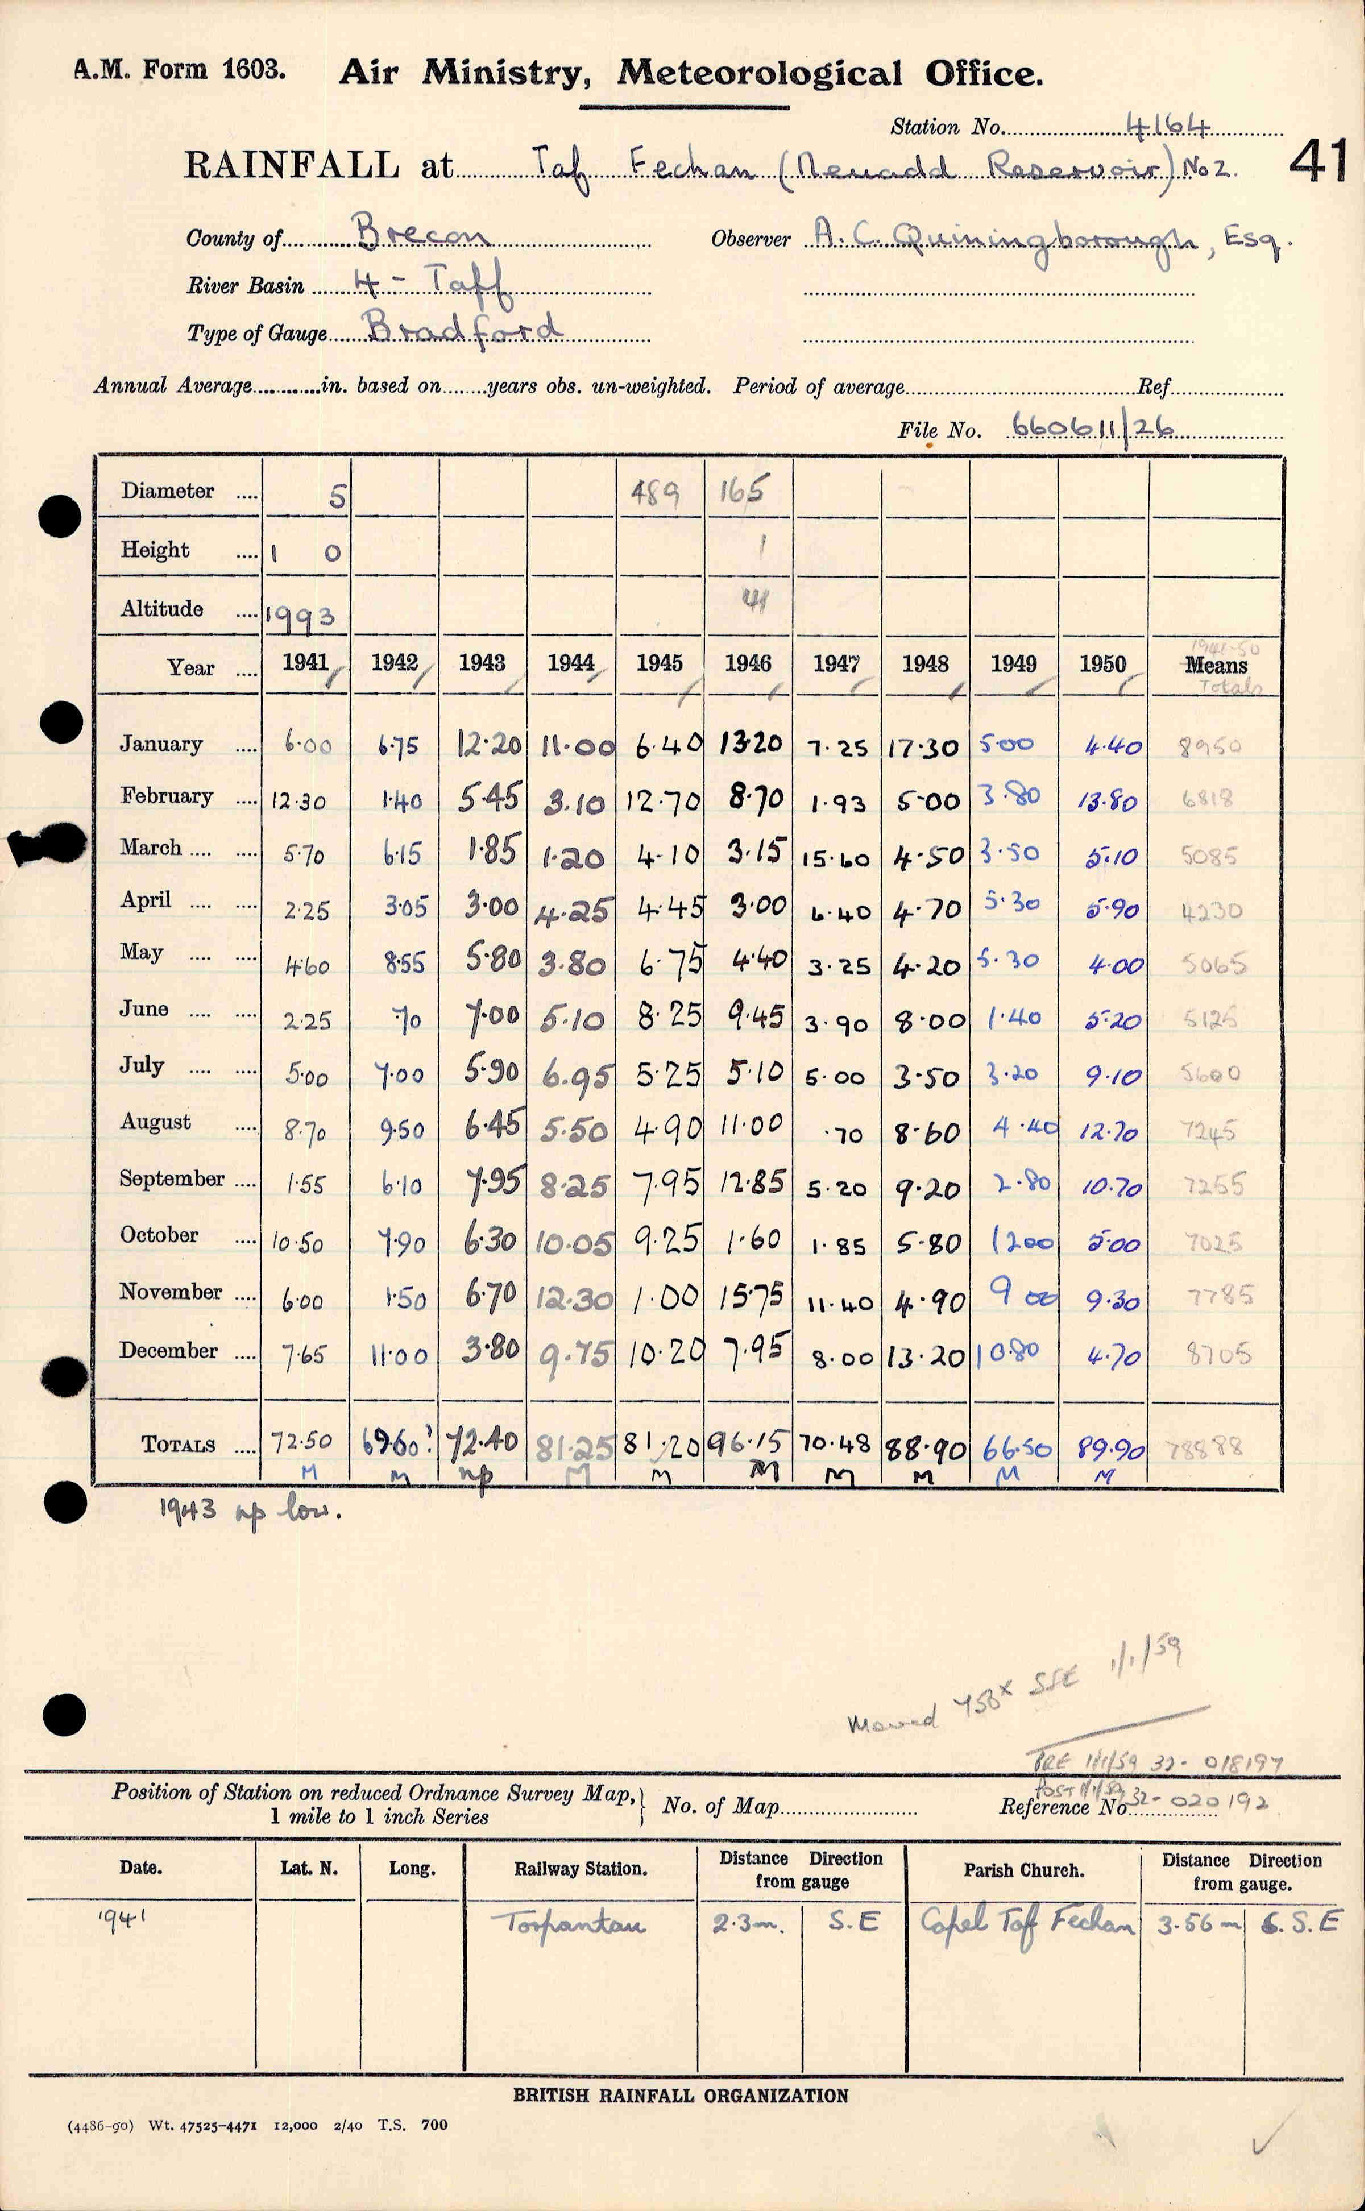 A.M. Form 1603. Air Ministry, Meteorological Office.
Station No. 4164
41
RAINFALL at Taf Fechan (Neuadd Reservoir) No 2.
County of Brecon Observer A. C. Quiningborough, Esq.
River Basin 4 - Taff
Type of Gauge Bradford
Annual Average in. based on years obs. un-weighted. Period of average Ref.
File No. 660611/26
Diameter 5 489 165
Height 1 0 1
Altitude 1993 41
1941-50
Year 1941 1942 1943 1944 1945 1946 1947 1948 1949 1950 Means
Totals
January 6.00 6.75 12.20 11.00 6.40 13.20 7.25 17.30 5.00 4.40 8950
February 12.30 1.40 5.45 3.10 12.70 8.70 1.93 5.00 3.80 13.80 6818
March 5.70 6.15 1.85 1.20 4.10 3.15 15.60 4.50 3.50 5.10 5085
April 2.25 3.05 3.00 4.25 4.45 3.00 6.40 4.70 5.30 5.90 4230
May 4.60 8.55 5.80 3.80 6.75 4.40 3.25 4.20 5.30 4.00 5065
June 2.25 .70 7.00 5.10 8.25 9.45 3.90 8.00 1.40 5.20 5125
July 5.00 7.00 5.90 6.95 5.25 5.10 5.00 3.50 3.20 9.10 5600
August 8.70 9.50 6.45 5.50 4.90 11.00 .70 8.60 4.40 12.70 7245
September 1.55 6.10 7.95 8.25 7.95 12.85 5.20 9.20 2.80 10.70 7255
October 10.50 7.90 6.30 10.05 9.25 1.60 1.85 5.80 12.00 5.00 7025
November 6.00 1.50 6.70 12.30 1.00 15.75 11.40 4.90 9.00 9.30 7785
December 7.65 11.00 3.80 9.75 10.20 7.95 8.00 13.20 10.80 4.70 8705
TOTALS 72.50 69.60? 72.40 81.25 81.20 96.15 70.48 88.90 66.50 89.90 78888
M M np M M M M M M M
1943 np low.
Moved 458x SSE 1/1/59
PRE 1/1/59 32- 018197
Position of Station on reduced Ordnance Survey Map, 1 mile to 1 inch Series No. of Map Reference No. POST 1/1/59 32- 020192
Date. Lat. N. Long. Railway Station. Distance from gauge Direction Parish Church. Distance from gauge. Direction
1941 Torpantau 2.3m. S.E Capel Taf Fechan 3.56m S.S.E
BRITISH RAINFALL ORGANIZATION
(4486-90) Wt. 47525-4471 12,000 2/40 T.S. 700